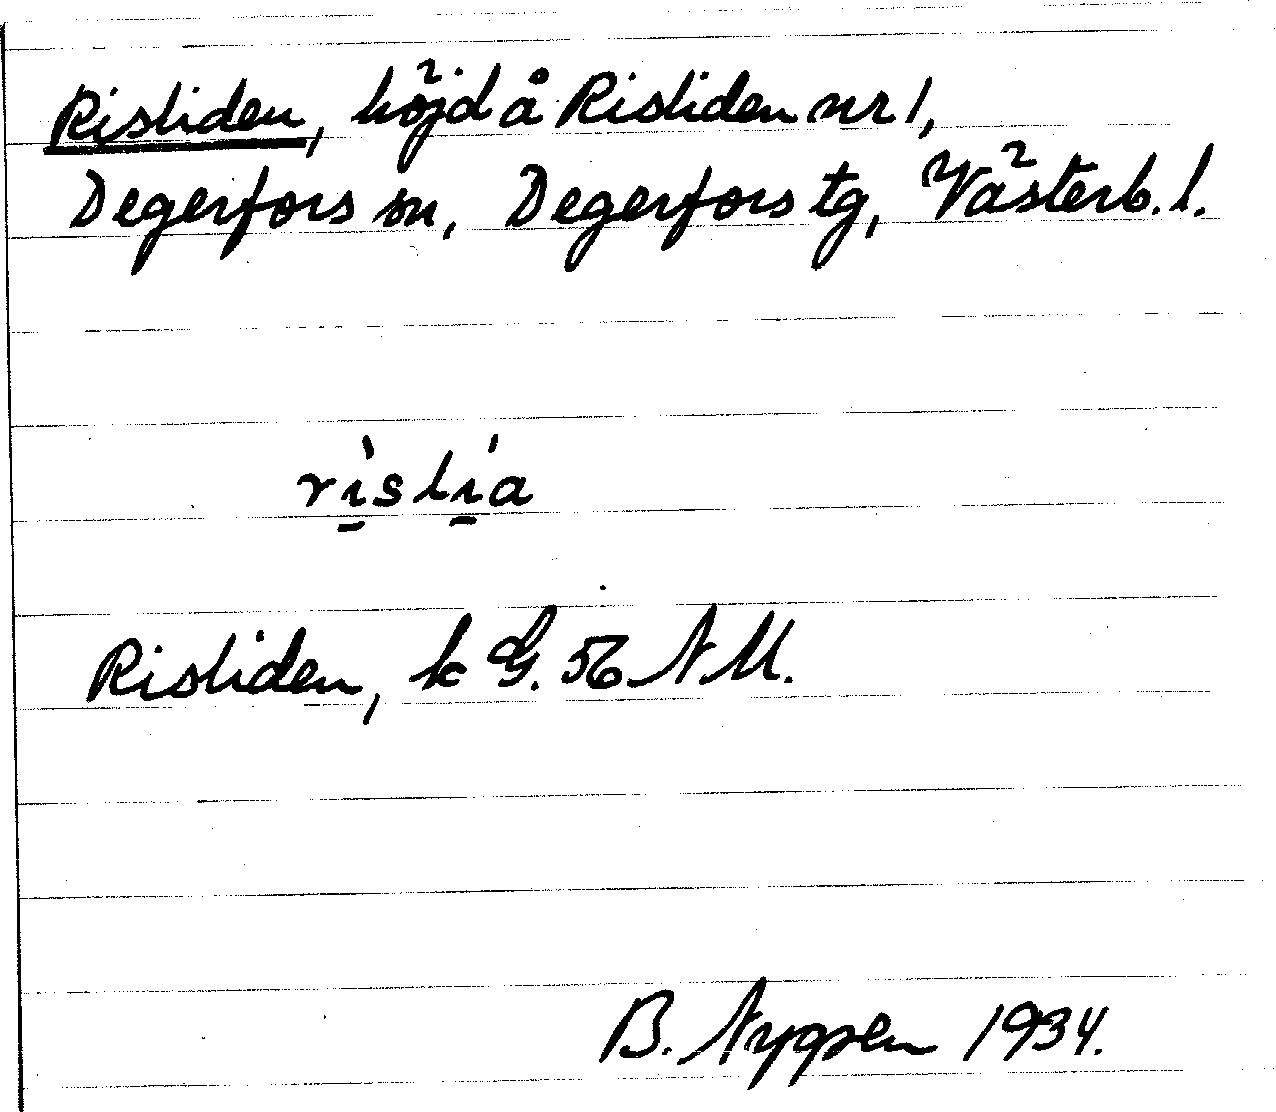 Risliden, höjd å Risliden nr 1,
Degerfors sn, Degerfors tg, Västerb. l.
rìslía
Risliden, k G. 56 NM.
B. 1934.